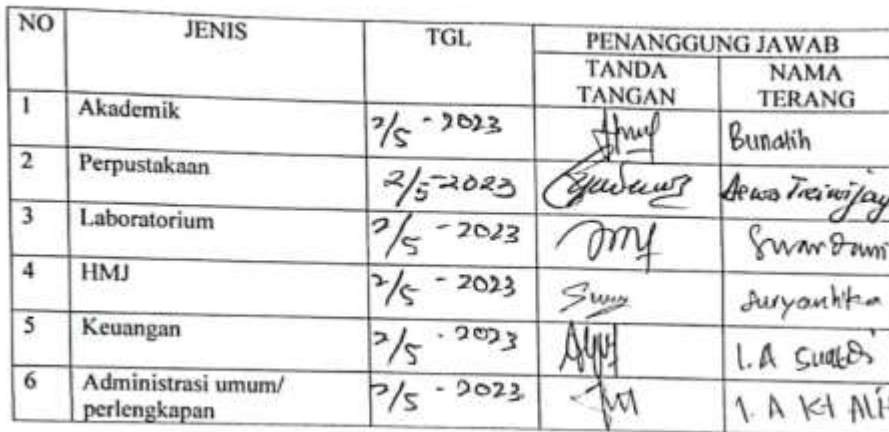 NO JENIS TGL PENANGGUNG JAWAB
TANDA TANGAN NAMA TERANG
1 Akademik 2/5 - 2023 Bunalih
2 Perpustakaan 2/5-2023 Dewa
3 Laboratorium 2/5 - 2023
4 HMJ 2/5 - 2023
5 Keuangan 2/5 - 2023 I.A
6 Administrasi umum/
perlengkapan 2/5 - 2023 I. A Kt Alit